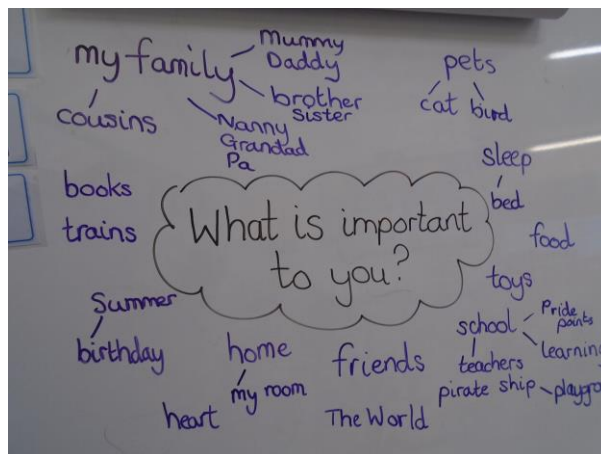 my family
Mummy
Daddy
brother
sister
Nanny
Grandad
Pa
cousins
pets
cat bird
sleep
bed
books
trains
What is important
to you?
food
toys
Summer
birthday
home
my room
friends
school
Pride
points
learning
teachers
pirate ship
heart
The World